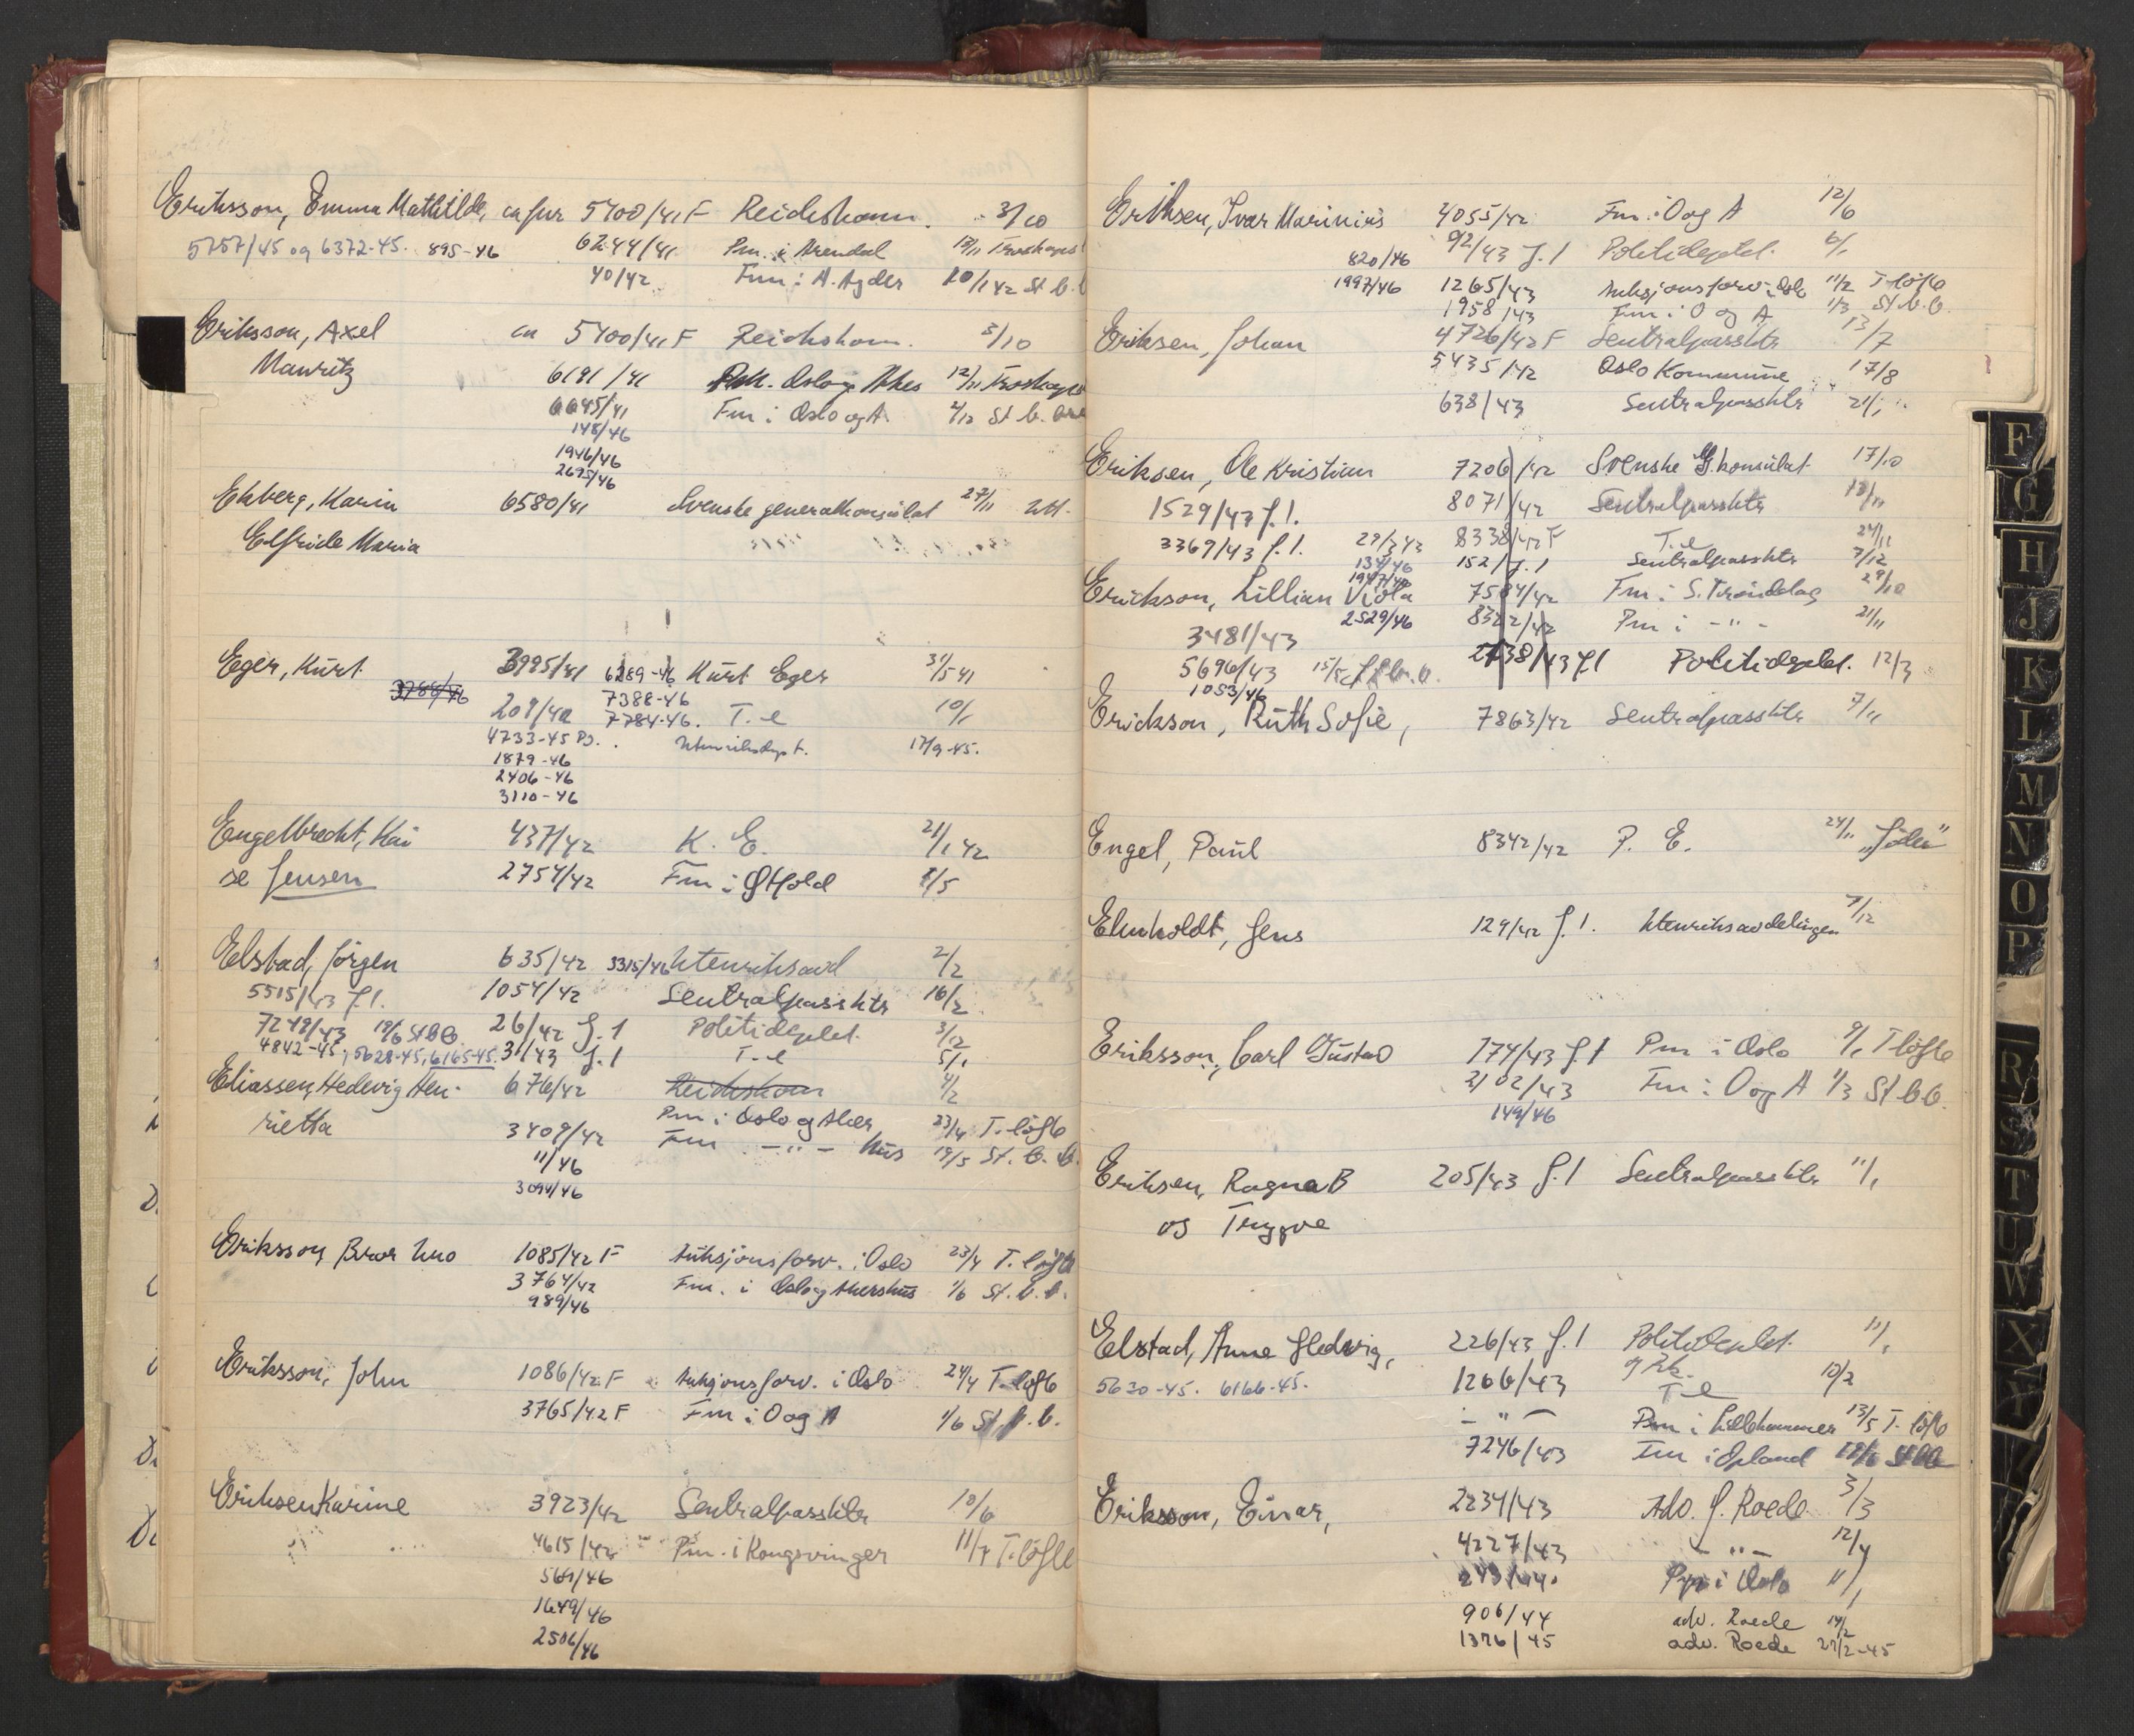 Eriksson, Emma Mathilde, ca fur 5700/41 F Reichskom. 3/10
5757/45 og 6372-45. 895-46 6244/41 Pm. i Arendal 13/11
40/42 Fm i A. Agder 20/1 42 St. b.
Eriksson, Axel ca 5700/41 F Reichskom. 3/10
Mauritz 6191/41 Pm. Oslo og Akers 12/11
6645/41 Fm i Oslo og A. 2/12 St. b.
148/46
1946/46
2695/46
Ekberg, Karin 6580/41 Svenske generalkonsulat 27/11
Elfride Maria
Eger, Kurt 3995/41 6289-46 Kurt Eger 31/5 41
3788/46 209/42 7388-46 T. e 10/1
7784-46.
4733-45 Pj. Utenriksdept. 17/9-45.
1879-46
2406-46
3110-46
Engelbrecht, Kai 437/42 K. E. 21/1 42
se Jensen 2754/42 Fm i Østfold 1/5
Elstad, Jörgen 635/42 3315/46 Utenriksavd 2/2
5515/43 J.1. 1054/42 Sentralpassktr 16/2
7249/43 19/6 St BB 26/42 J.1 Politideptet. 3/12
4842-45, 5628-45, 6165-45. 31/43 J.1 T. e 5/1
Eliassen, Hedevig Hen- 676/42 Reichskom 4/2
rietta Pm i Oslo og Aker 23/4 T. löfte
3409/42 Fm - " - hus 19/5 St. b. b.
11/46
3094/46
Eriksson, Bror Uno 1085/42 F Auksjonsforv. i Oslo 23/4 T. löfte
3764/42 Fm. i Oslo og Akershus 1/6 St. b. b.
989/46
Eriksson, John 1086/42 F Auksjonsforv. i Oslo 24/4 T. löfte
3765/42 F Fm i O og A 1/6 St. b. b.
Eriksen Karine 3923/42 Sentralpassktr 10/6
4615/42 Pm. i Kongsvinger 11/7 T. löfte
561/46
1649/46
2506/46
Eriksen, Ivar Marinius 4055/42 Fm i O og A 12/6
820/46 92/43 J.1 Politideptet. 6/1
1997/46 1265/43 Auksjonsforv. i Oslo 11/2 T löfte
1958/43 Fm i O og A 1/3 St. b. b.
Eriksen, Johan 4726/42 F Sentralpassktr 13/7
5435/42 Oslo Kommune 17/8
638/43 Sentralpassktr 21/1
Eriksen, Ole Kristian 7206/42 Svenske G. konsulat 17/10
1529/43 J.1. 8071/42 Sentralpassktr
3369/43 J.1. 29/3 43 8338/42 F T. e 24/11
134/46 152/J.1 Sentralpassktr 7/12
1947/46
Erickson, Lillian Viola 7584/42 Fm i S. Trøndelag 29/10
2529/46 8322/42 Pm i - " - 21/11
3481/43
5696/43 15/5 St. b. b. 2738/43 J1 Politideptet. 12/3
1053/46
Erickson, Ruth Sofie, 7863/42 Sentralpassktr 7/11
Engel, Paul 8342/42 P. E. 24/11 "Jöde"
Elmholdt, Jens 129/42 J.1. Utenriksavdelingen 7/12
Eriksson, Carl Gustav 174/43 J1 Pm i Oslo 9/1 T löfte
2102/43 Fm i O og A 1/3 St b b.
149/46
Eriksen, Ragna B 205/43 J.1 Sentralpassktr 11/1
og Trygve
Elstad, Anne Hedvig, 226/43 J.1 Politideptet. 11/1
5630-45. 6166-45. 1266/43 T. e 10/2
- " - Pm i Lillehammer 13/5 T. löfte
7246/43 Fm i Opland 19/6 St BB
Eriksson, Einar, 2234/43 Adv. J. Roede 3/3
4227/43 - " - 12/4
Pm i Oslo 11/1
906/44 adv. Roede 14/2
1376/45 adv. Roede 27/2-45
F
G
H
J
K
L
M
N
O
P
R
S
T
U
W
X
Y